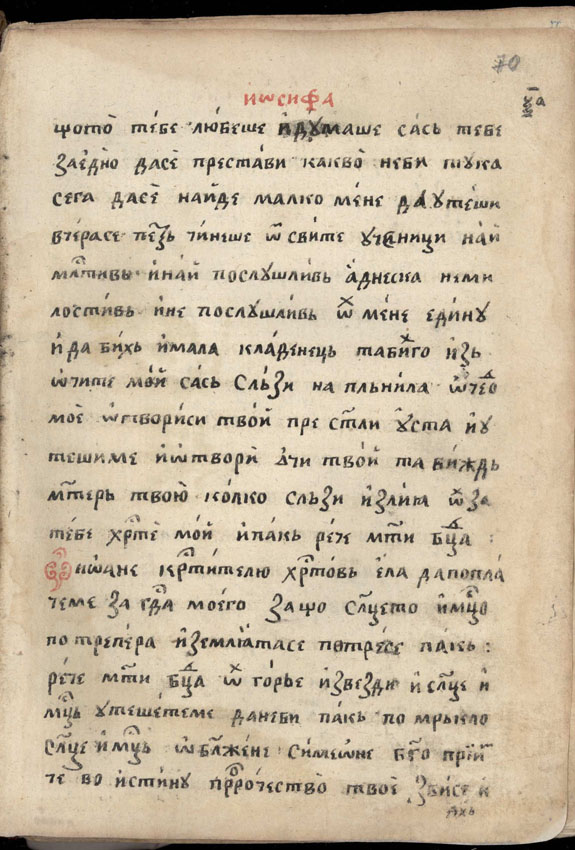 70
иѡсифа
щото̀ те́бе лю́беше и҆думаше са́сь тебе
заедно дасѐ престави какво̀ неби тꙋка
сега дасѐ найде малко мене да ꙋтеши
вчерасе пе́зь чи́неше ѿ свите ꙋченици най
млⷭтивь и҆най послꙋшливь а҆днеска неми
лостивь и҆не послꙋшливь ѡⷯ мене единꙋ
и҆да бихь и҆мала кла́денець таби́ⷯго и҆зь
ѡ҆чите мо́й са́сь сльзи на пльнила ѡ҆чеⷣо
моѐ ѡ҆твориси твой пре стⷭли ꙋ҆ста и҆ꙋ
тешиме и҆ѡ҆твори ѻчи твой та виждь
мⷮтерь твою ко́лко сльзи и҆злиꙗ ѿ за
те́бе хрⷭтѐ мой и҆пакь рече мⷮти бцⷣа :
Ѿ иѡане крⷭтителю хрⷭтовь ела да попла
чеме за гдⷭа моего защо слⷩцето и҆мцⷭо
по трепера и҆землꙗтасе потресе пакь :
рече мⷮти бцⷣа ѡⷯ горье и҆звезди и҆ слⷩце и҆
мцⷭь ꙋтешетеме данеби пакь по мрькло
слⷩце и҆ мцⷭь ѡ҆ блⷤжене симеѡне бгⷭо прїй
че во и҆стинꙋ пррⷪочество твое збисе и҆